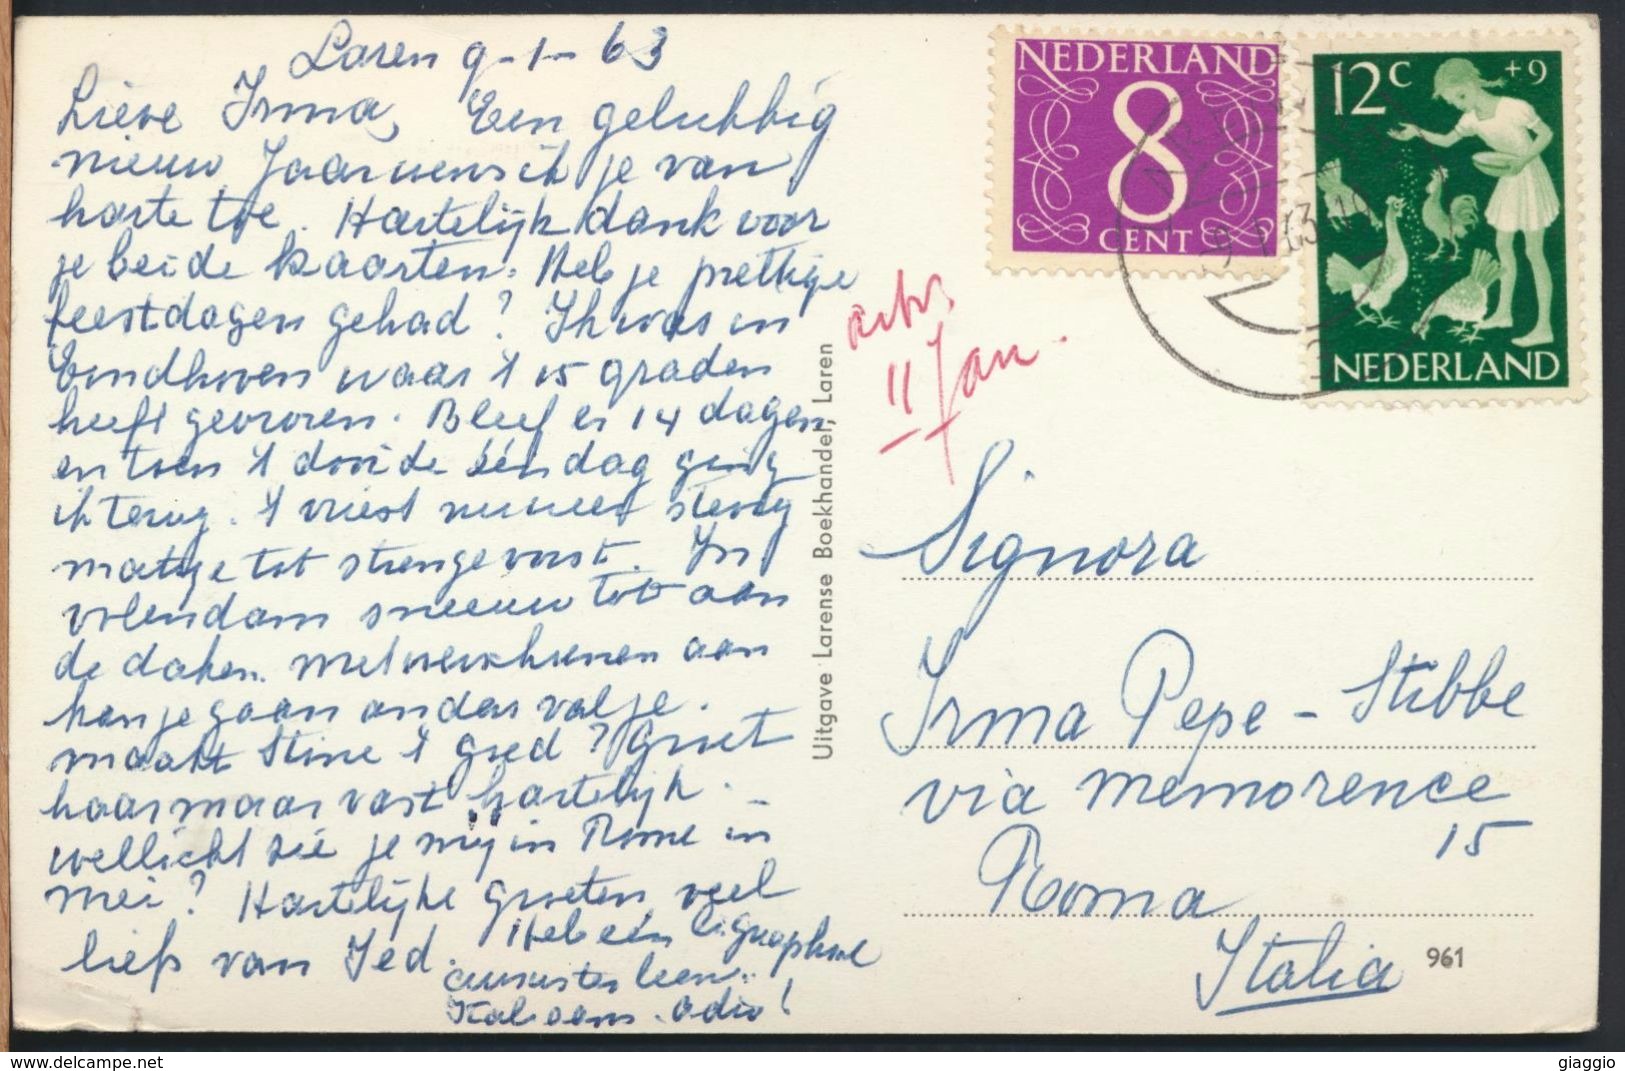 Laren 9-1-63
Lieve Irma, Een gelukkig
nieuw Jaar wens ik je van
harte toe. Hartelijk dank voor
je beide kaarten. Heb je prettige
feestdagen gehad? Ik was in
Eindhoven waar 't 15 graden
heeft gevroren. Bleef er 14 dagen
en toen 't dooide één dag ging
ik terug. 't vriest nu weer stevig
matige tot strenge vorst. In
Volendam sneeuw tot aan
de daken. Met
kan je gaan anders val je.
maakt Stine 't goed? Groet
haar maar vast hartelijk.
wellicht zie je mij in Rome in
mei? Hartelijke groeten veel
liefs van Jed. Heb één
Italiaans. adio!
Uitgave Larense Boekhandel, Laren
11 Jan.
NEDERLAND
8
CENT
12c +9
NEDERLAND
Signora
Irma Pepe-Stibbe
via memorence
15
Roma
Italia
961
giaggio